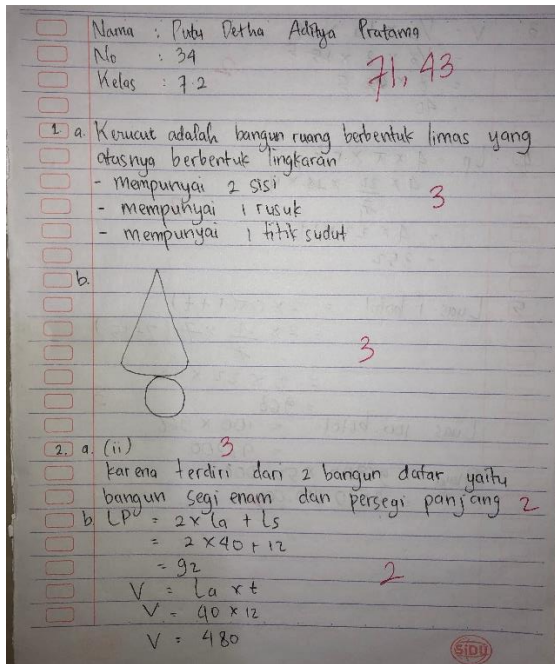 Nama : Putu Detha Aditya Pratama
No : 34
Kelas : 7.2
71,43
1 a. Kerucut adalah bangun ruang berbentuk limas yang
atasnya berbentuk lingkaran
- mempunyai 2 sisi
- mempunyai 1 rusuk
- mempunyai 1 titik sudut
3
b.
3
2. a. (ii)
3
karena terdiri dari 2 bangun datar yaitu
bangun segi enam dan persegi panjang 2
b. LP = 2 x La + Ls
= 2 x 40 + 12
= 92
2
V = La x t
V = 40 x 12
V = 480
SIDU